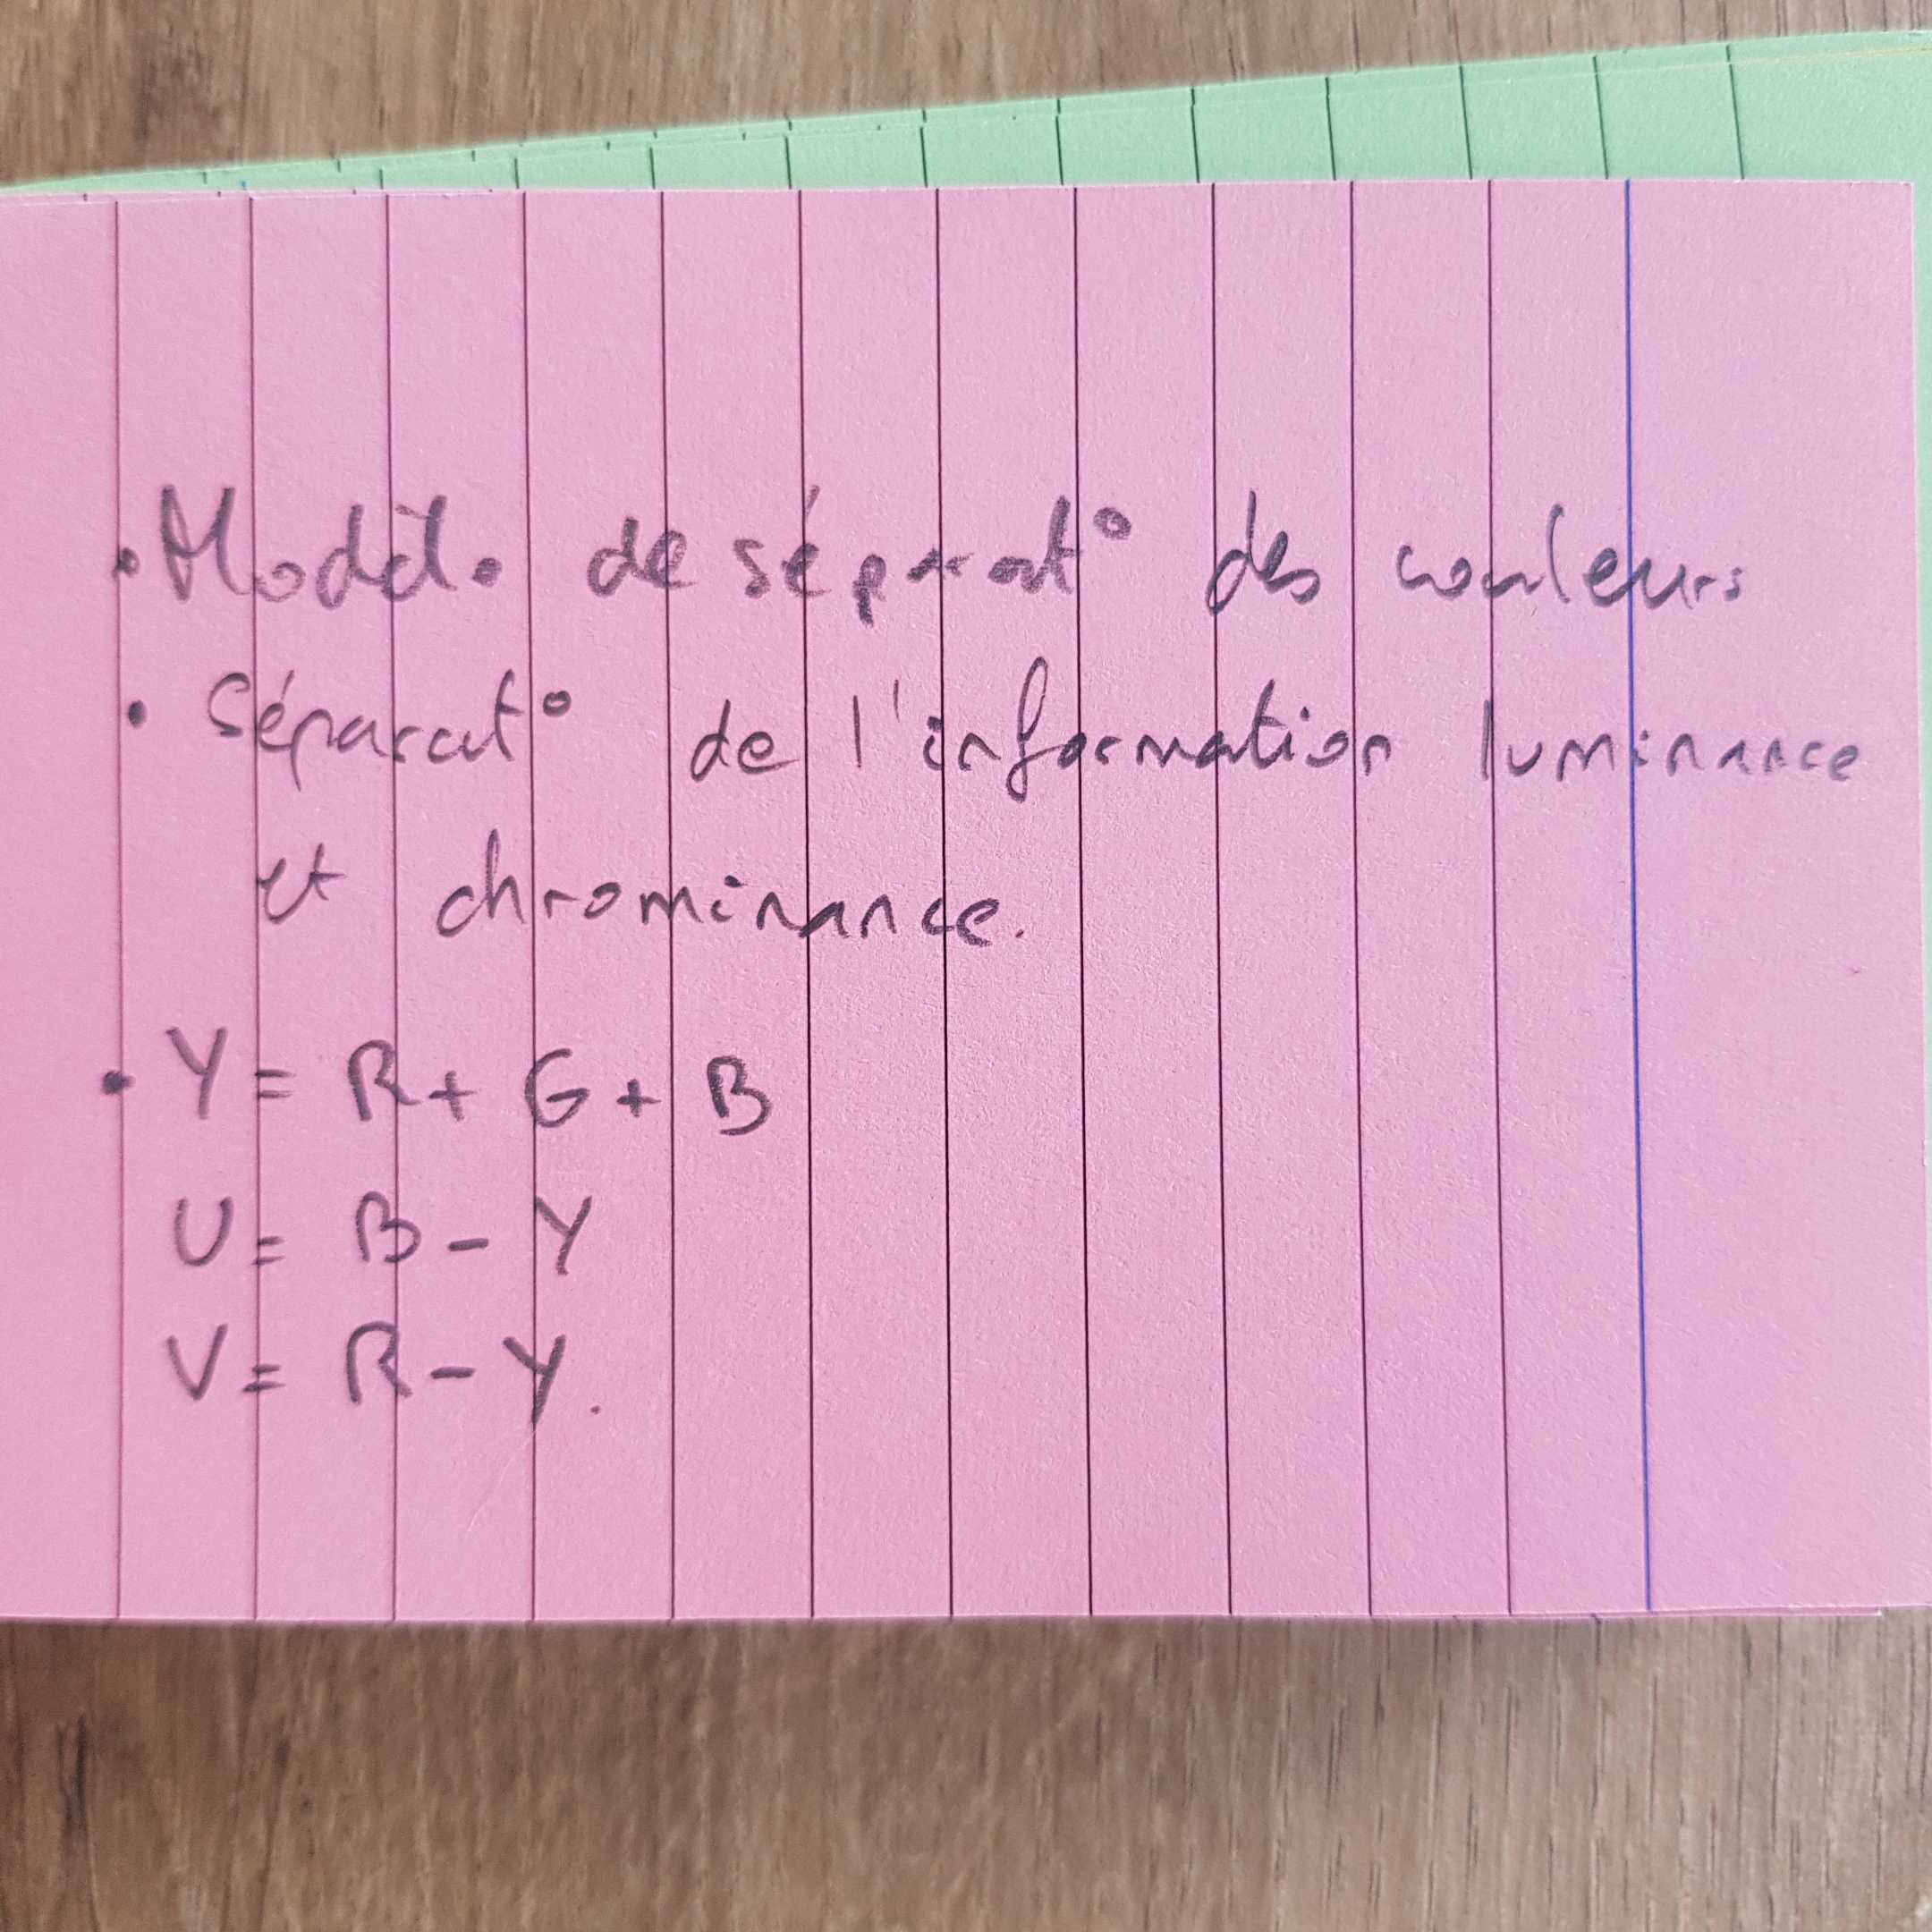 • Modèle de séparat° des couleurs
• Séparat° de l'information luminance
et chrominance.
• Y = R + G + B
U = B - Y
V = R - Y.